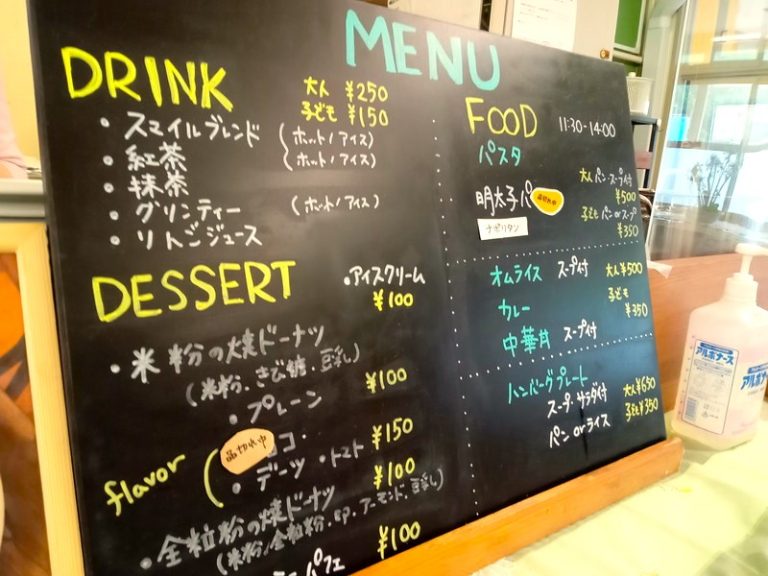 MENU
DRINK
大人 ¥250
子ども ¥150
・スマイルブレンド (ホット/アイス)
・紅茶 (ホット/アイス)
・抹茶
・グリンティー (ホット/アイス)
・リンゴジュース
DESSERT
・アイスクリーム
¥100
・米粉の焼ドーナツ
(米粉、きび糖、豆乳)
・プレーン ¥100
品切れ中
コ・
flavor
・デーツ ・トマト ¥150
・全粒粉の焼ドーナツ ¥100
(米粉、全粒粉、卵、アーモンド、豆乳)
パフェ ¥100
FOOD 11:30-14:00
パスタ
明太子パ
品切れ中
ナポリタン
大人 パン・スープ付
¥500
子ども パン or スープ
¥350
オムライス スープ付 大人 ¥500
カレー 子ども ¥350
中華丼 スープ付
ハンバーグプレート
スープ・サラダ付 大人 ¥650
パン or ライス 子ども ¥350
アルボナース